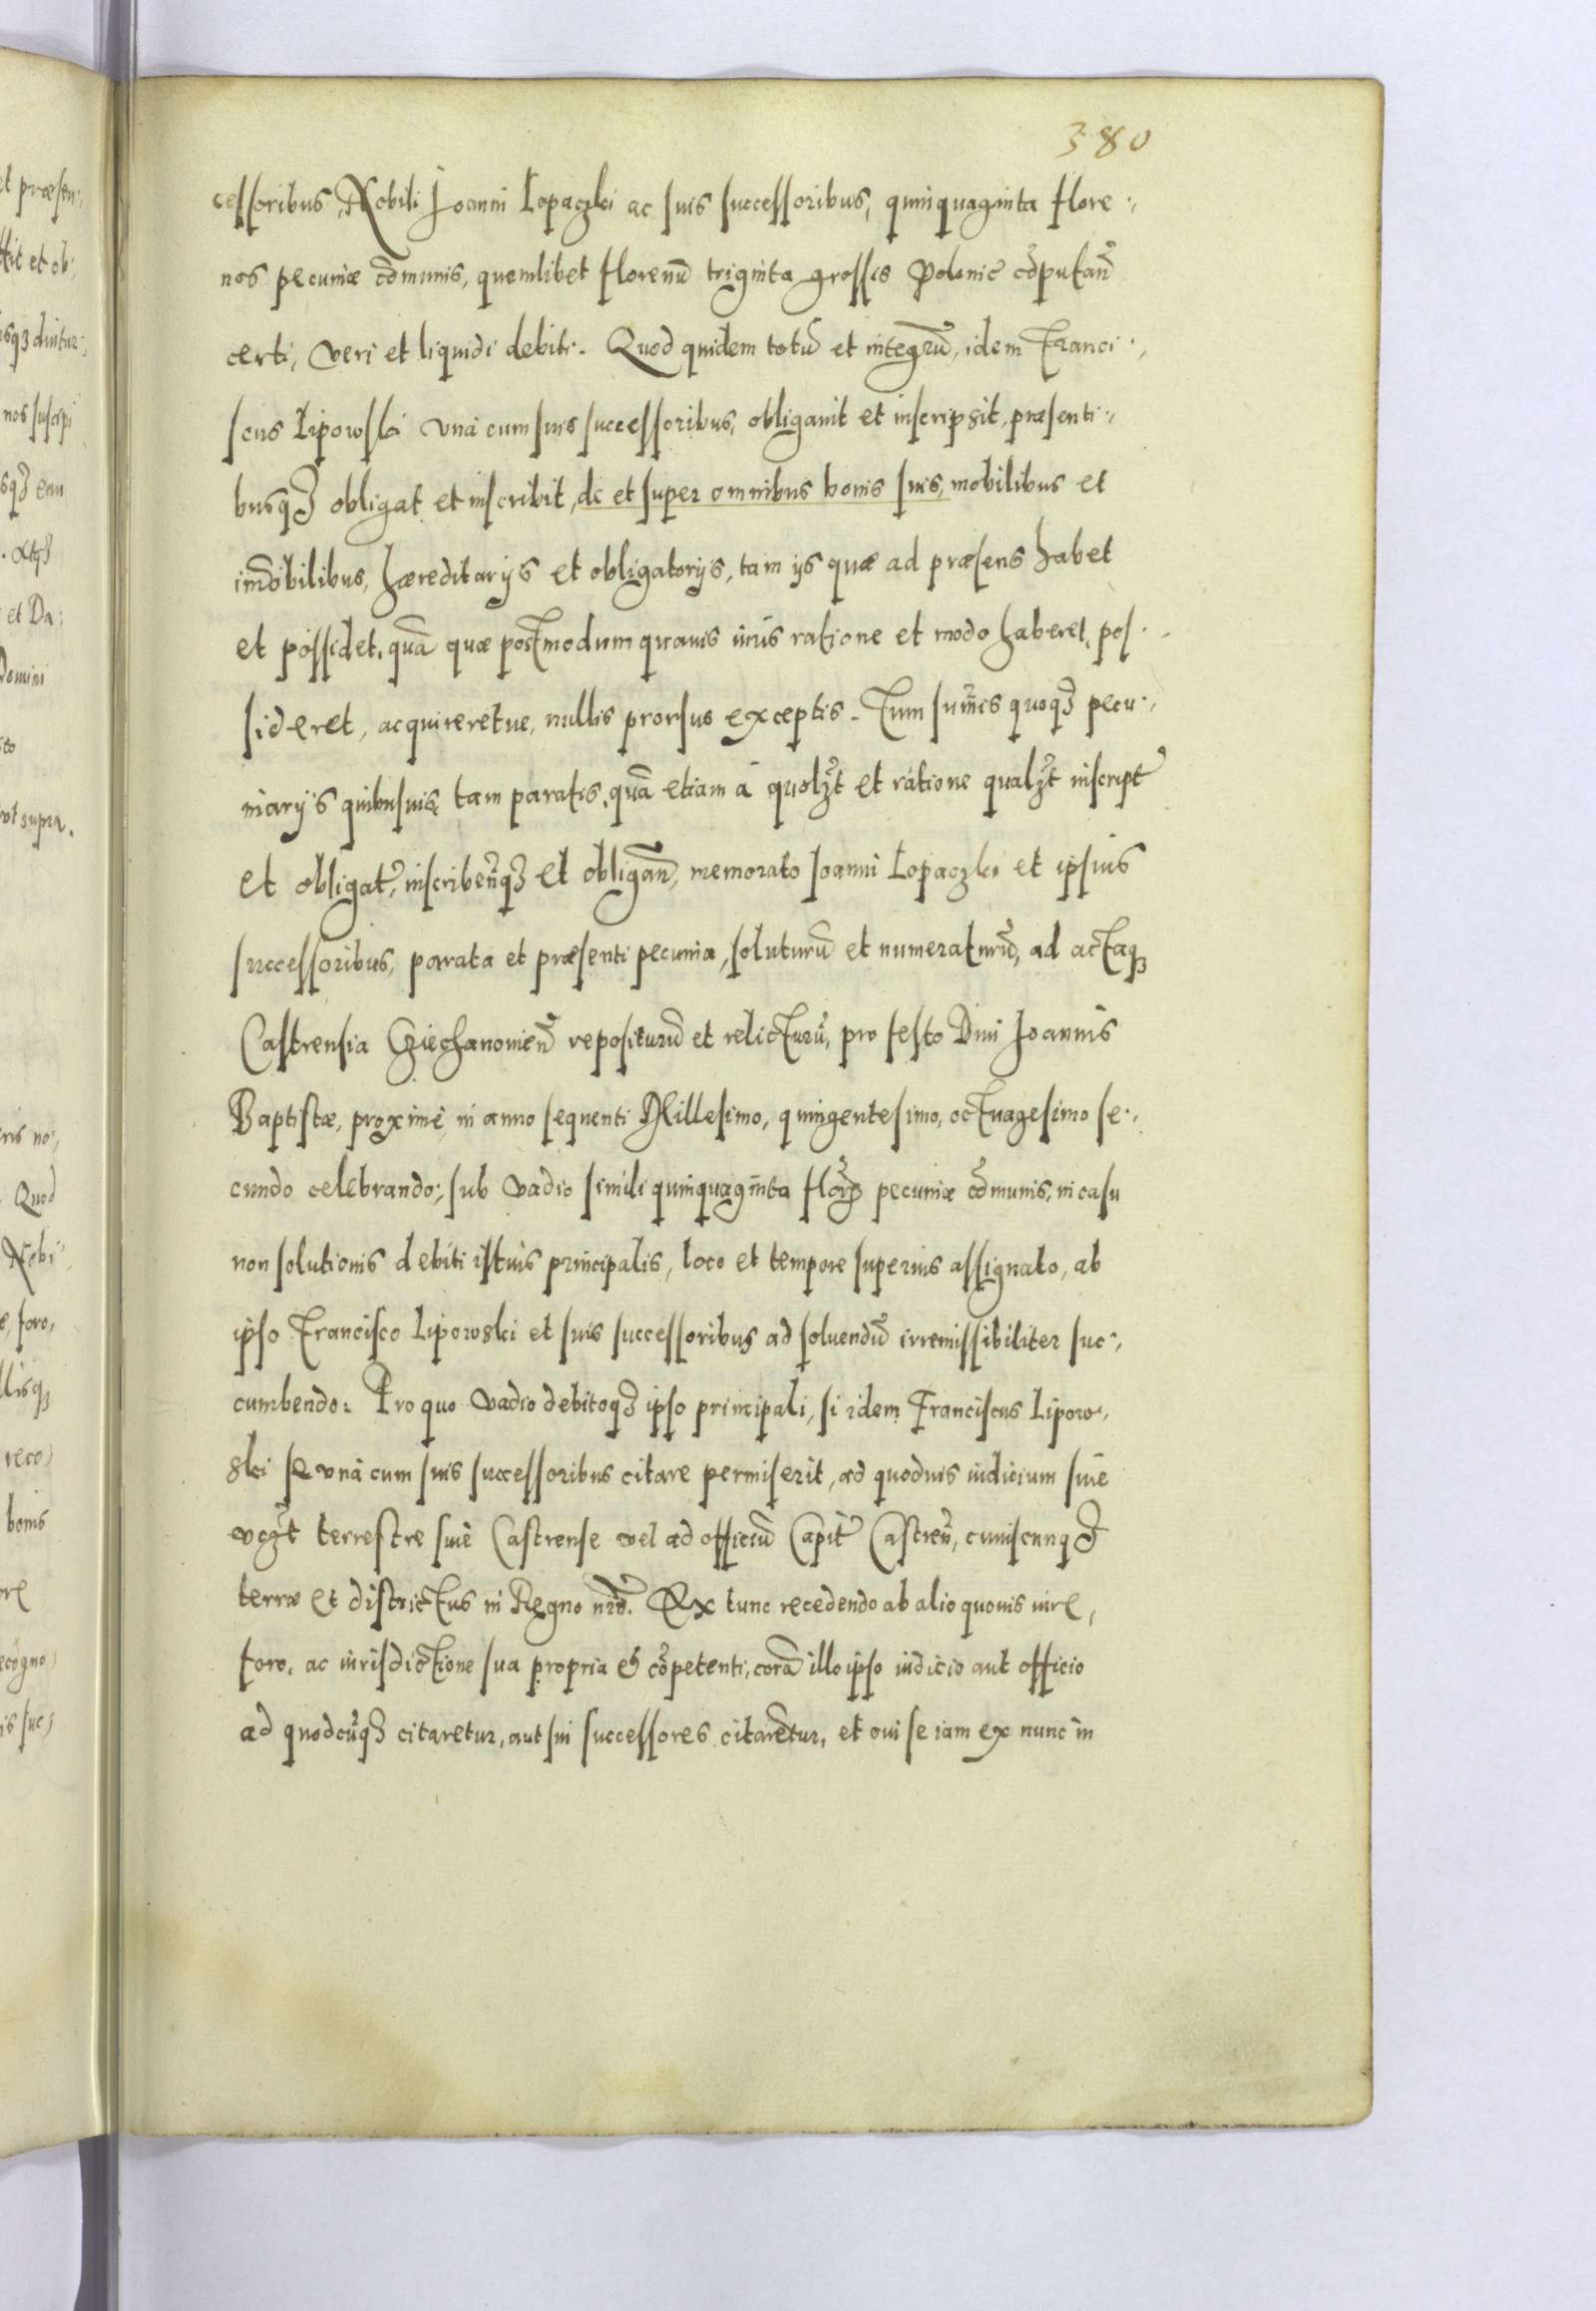 380
cessoribus, Nobili Joanni Lopaczki ac suis successoribus, quinquaginta flore:,
nos pecuniæ cōmunis, quemlibet florenū triginta grossis Polonic̄ cōputan̄
certi, veri et liquidi debiti. Quod quidem totū et integrū, idem Franci:,
scus Lipowski unà cum suis successoribus, obligauit et inscripsit, præsenti:,
busq3 obligat et inscribit, de et super omnibus bonis suis, mobilibus et
im̄obilibus, hæreditarijs et obligatorijs, tam ijs quæ ad præsens habet
et possidet, quā quæ postmodum quauis iuris ratione et modo haberet, pos:
sideret, acquireretue, nullis prorsus exceptis. Tum sum̄is quoq3 pecu:,
niarijs quibusuis, tam paratis, quā etiam à quolz̄t et ratione qualz̄t inscript̄
et obligat̄, inscriben̄q3 et obligan̄, memorato Joanni Lopaczki et ipsius
successoribus, parata et præsenti pecunia, soluturū et numeraturū, ad actaq3
Castrensia Cziechanouien̄ repositurū et relicturū, pro festo Diui Joannis
Baptistæ, proximè in anno sequenti Millesimo, quingentesimo, octuagesimo se:,
cundo celebrando:, sub vadio simili quinquaginta flor̄ pecuniæ cōmunis, in casu
non solutionis debiti istius principalis, loco et tempore superius assignato, ab
ipso Francisco Lipowski et suis successoribus ad soluendū irremissibiliter suc:,
cumbendo: Pro quo vadio debitoq3 ipso principali, si idem Franciscus Lipow:,
ski se unà cum suis successoribus citare permiserit, ad quoduis iudicium siue
vcz̄t terrestre siuè Castrense vel ad officiū Capit̄ Castren̄, cuiuscunq3
terræ et districtus in Regno nr̄o. Ex tunc recedendo ab alio quouis iure,
foro, ac iurisdictione sua propria et cōpetenti, corā illo ipso iudicio aut officio
ad quodcūq3 citaretur, aut sui successores citarētur, et cui se iam ex nunc in